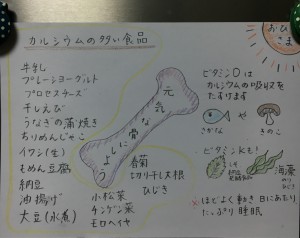 カルシウムの多い食品
おひさま
牛乳
プレーンヨーグルト
プロセスチーズ
干しえび
うなぎの蒲焼き
ちりめんじゃこ
イワシ(生)
もめん豆腐
納豆
油揚げ
大豆(水煮)
小松菜
チンゲン菜
モロヘイヤ
春菊
切り干し大根
ひじき
元気な骨にしよう
ビタミンDは
カルシウムの吸収を
たすけます
さかな
や
きのこ
ビタミンKも!
納豆
海藻
のり
ひじき
ほどよく動き 日にあたり
たっぷり 睡眠